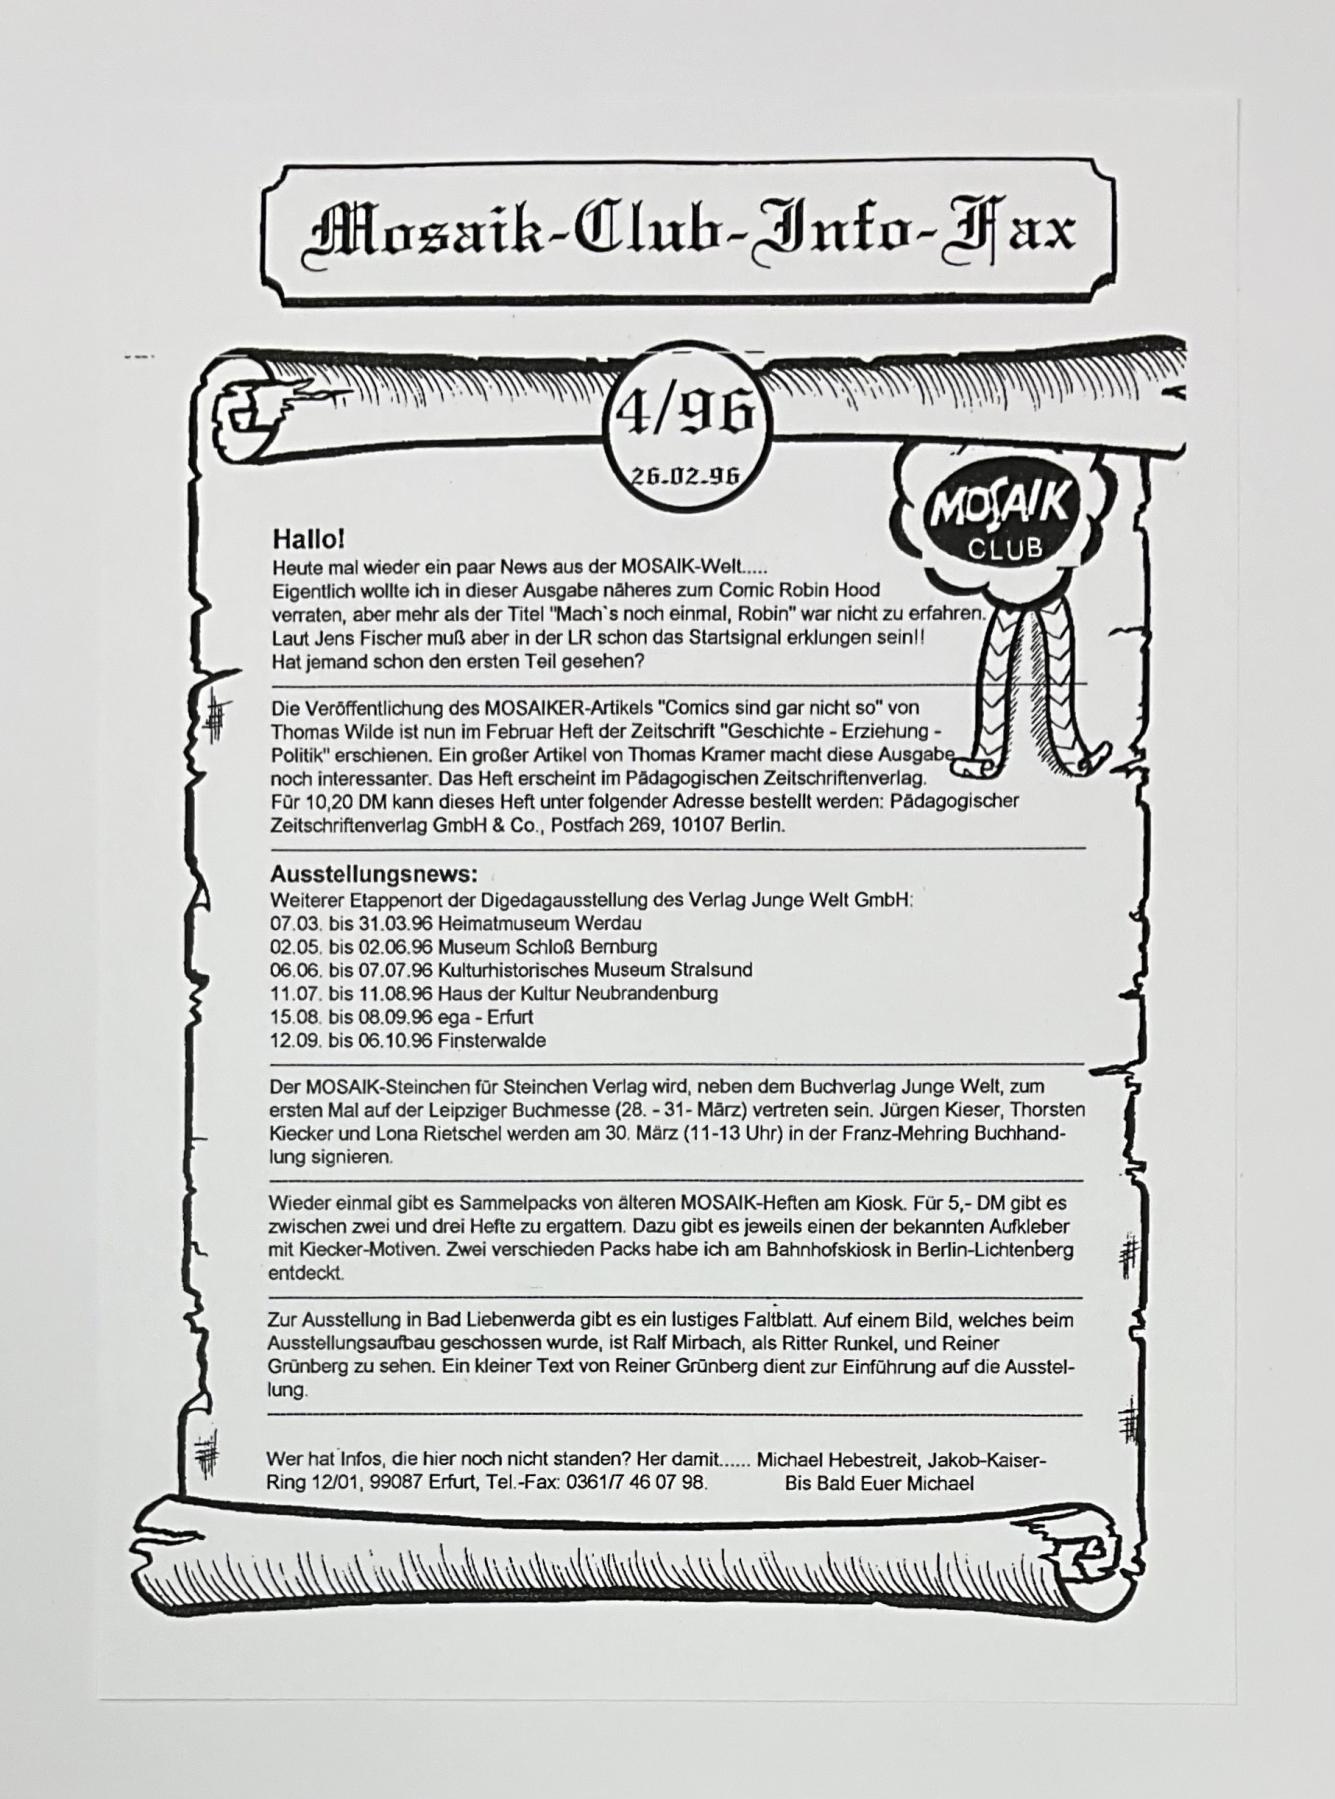 Mosaik-Club-Info-Fax
4/96
26.02.96
MOSAIK
CLUB
Hallo!
Heute mal wieder ein paar News aus der MOSAIK-Welt.....
Eigentlich wollte ich in dieser Ausgabe näheres zum Comic Robin Hood
verraten, aber mehr als der Titel "Mach`s noch einmal, Robin" war nicht zu erfahren.
Laut Jens Fischer muß aber in der LR schon das Startsignal erklungen sein!!
Hat jemand schon den ersten Teil gesehen?
Die Veröffentlichung des MOSAIKER-Artikels "Comics sind gar nicht so" von
Thomas Wilde ist nun im Februar Heft der Zeitschrift "Geschichte - Erziehung -
Politik" erschienen. Ein großer Artikel von Thomas Kramer macht diese Ausgabe
noch interessanter. Das Heft erscheint im Pädagogischen Zeitschriftenverlag.
Für 10,20 DM kann dieses Heft unter folgender Adresse bestellt werden: Pädagogischer
Zeitschriftenverlag GmbH & Co., Postfach 269, 10107 Berlin.
Ausstellungsnews:
Weiterer Etappenort der Digedagausstellung des Verlag Junge Welt GmbH:
07.03. bis 31.03.96 Heimatmuseum Werdau
02.05. bis 02.06.96 Museum Schloß Bernburg
06.06. bis 07.07.96 Kulturhistorisches Museum Stralsund
11.07. bis 11.08.96 Haus der Kultur Neubrandenburg
15.08. bis 08.09.96 ega - Erfurt
12.09. bis 06.10.96 Finsterwalde
Der MOSAIK-Steinchen für Steinchen Verlag wird, neben dem Buchverlag Junge Welt, zum
ersten Mal auf der Leipziger Buchmesse (28. - 31- März) vertreten sein. Jürgen Kieser, Thorsten
Kiecker und Lona Rietschel werden am 30. März (11-13 Uhr) in der Franz-Mehring Buchhand-
lung signieren.
Wieder einmal gibt es Sammelpacks von älteren MOSAIK-Heften am Kiosk. Für 5,- DM gibt es
zwischen zwei und drei Hefte zu ergattern. Dazu gibt es jeweils einen der bekannten Aufkleber
mit Kiecker-Motiven. Zwei verschieden Packs habe ich am Bahnhofskiosk in Berlin-Lichtenberg
entdeckt.
Zur Ausstellung in Bad Liebenwerda gibt es ein lustiges Faltblatt. Auf einem Bild, welches beim
Ausstellungsaufbau geschossen wurde, ist Ralf Mirbach, als Ritter Runkel, und Reiner
Grünberg zu sehen. Ein kleiner Text von Reiner Grünberg dient zur Einführung auf die Ausstel-
lung.
Wer hat Infos, die hier noch nicht standen? Her damit...... Michael Hebestreit, Jakob-Kaiser-
Ring 12/01, 99087 Erfurt, Tel.-Fax: 0361/7 46 07 98. Bis Bald Euer Michael